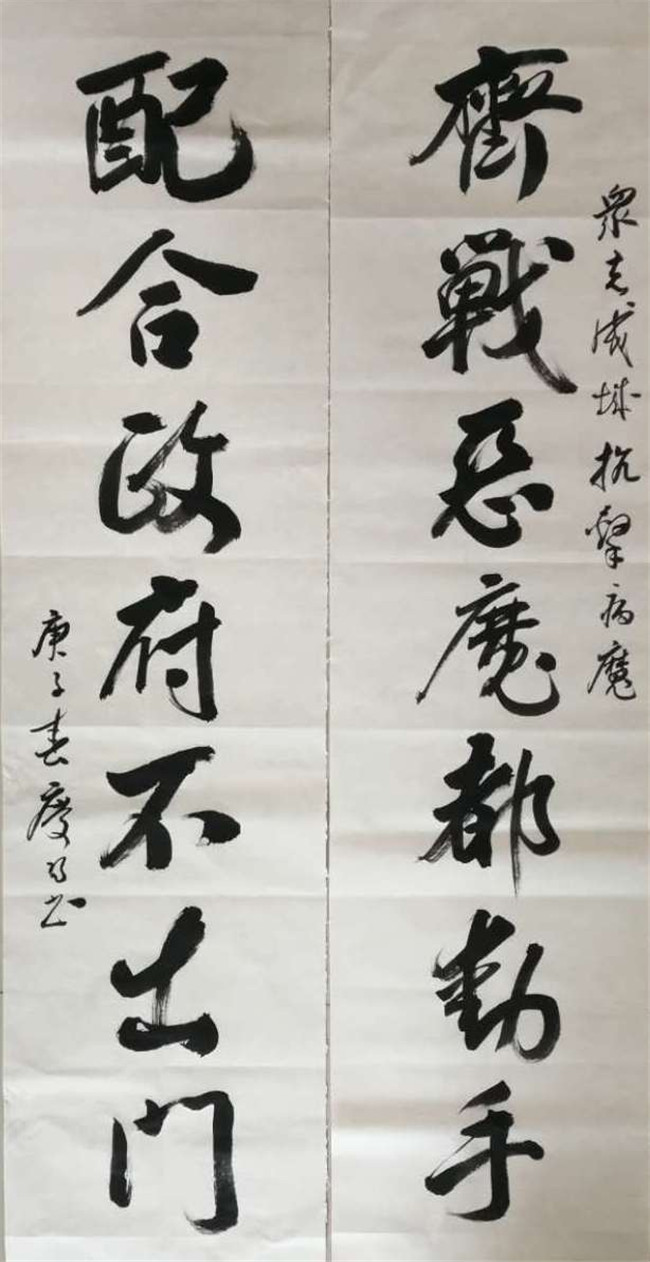 眾志成城抗擊病魔
齊戰惡魔都動手
配合政府不出門
庚子春慶書